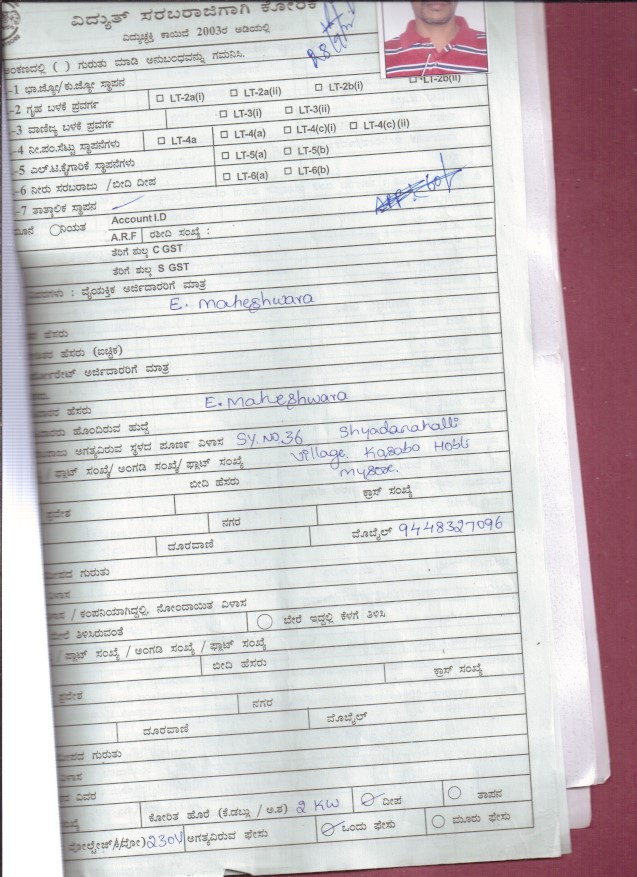 ವಿದ್ಯುತ್ ಸರಬರಾಜಿಗಾಗಿ ಕೋರಿಕೆ
ವಿದ್ಯುಚ್ಛಕ್ತಿ ಕಾಯಿದೆ 2003ರ ಅಡಿಯಲ್ಲಿ
ಅಂಕಣದಲ್ಲಿ ( ) ಗುರುತು ಮಾಡಿ ಅನುಬಂಧವನ್ನು ಗಮನಿಸಿ.
-1 ಭಾ.ಜ್ಯೋ/ ಕು.ಜ್ಯೋ ಸ್ಥಾಪನ
-2 ಗೃಹ ಬಳಕೆ ಪ್ರವರ್ಗ LT-2a(i) LT-2a(ii) LT-2b(i) LT-2b(ii)
-3 ವಾಣಿಜ್ಯ ಬಳಕೆ ಪ್ರವರ್ಗ LT-3(i) LT-3(ii)
-4 ನೀ.ಪಂ.ಸೆಟ್ಟು ಸ್ಥಾಪನೆಗಳು LT-4a LT-4(a) LT-4(c)(i) LT-4(c)(ii)
-5 ಎಲ್.ಟಿ.ಕೈಗಾರಿಕೆ ಸ್ಥಾಪನೆಗಳು LT-5(a) LT-5(b)
-6 ನೀರು ಸರಬರಾಜು /ಬೀದಿ ದೀಪ LT-6(a) LT-6(b)
-7 ತಾತ್ಕಾಲಿಕ ಸ್ಥಾಪನ
ನಿಯತ Account I.D
A.R.F ರಶೀದಿ ಸಂಖ್ಯೆ :
ತೆರಿಗೆ ಶುಲ್ಕ C GST
ತೆರಿಗೆ ಶುಲ್ಕ S GST
ವಿವರಗಳು : ವೈಯಕ್ತಿಕ ಅರ್ಜಿದಾರರಿಗೆ ಮಾತ್ರ
E. Maheshwara
ಹೆಸರು
ಹೆಸರು (ಐಚ್ಛಿಕ)
ಅರ್ಜಿದಾರರಿಗೆ ಮಾತ್ರ
ಹೆಸರು E. Maheshwara
ಹೊಂದಿರುವ ಹುದ್ದೆ
ಅಗತ್ಯವಿರುವ ಸ್ಥಳದ ಪೂರ್ಣ ವಿಳಾಸ SY.NO.36 Shyadanahalli
/ ಫ್ಲಾಟ್ ಸಂಖ್ಯೆ/ ಅಂಗಡಿ ಸಂಖ್ಯೆ/ ಫ್ಲಾಟ್ ಸಂಖ್ಯೆ Village, Kasaba Hobli
Mysore.
ಬೀದಿ ಹೆಸರು ಕ್ರಾಸ್ ಸಂಖ್ಯೆ
ಪ್ರದೇಶ
ನಗರ
ದೂರವಾಣಿ ಮೊಬೈಲ್ 9448327096
ಗುರುತು
ವಿಳಾಸ
/ ಕಂಪನಿಯಾಗಿದ್ದಲ್ಲಿ, ನೋಂದಾಯಿತ ವಿಳಾಸ
ತಿಳಿಸಿರುವಂತೆ ಬೇರೆ ಇದ್ದಲ್ಲಿ ಕೆಳಗೆ ತಿಳಿಸಿ
/ ಫ್ಲಾಟ್ ಸಂಖ್ಯೆ / ಅಂಗಡಿ ಸಂಖ್ಯೆ / ಫ್ಲಾಟ್ ಸಂಖ್ಯೆ
ಬೀದಿ ಹೆಸರು ಕ್ರಾಸ್ ಸಂಖ್ಯೆ
ಪ್ರದೇಶ
ನಗರ
ದೂರವಾಣಿ ಮೊಬೈಲ್
ಗುರುತು
ವಿಳಾಸ
ವಿವರ
ಕೋರಿತ ಹೊರೆ (ಕೆ.ಡಬ್ಲು / ಅ.ಶ) 2 KW ದೀಪ ತಾಪನ
230V ಅಗತ್ಯವಿರುವ ಫೇಸು ಒಂದು ಫೇಸು ಮೂರು ಫೇಸು